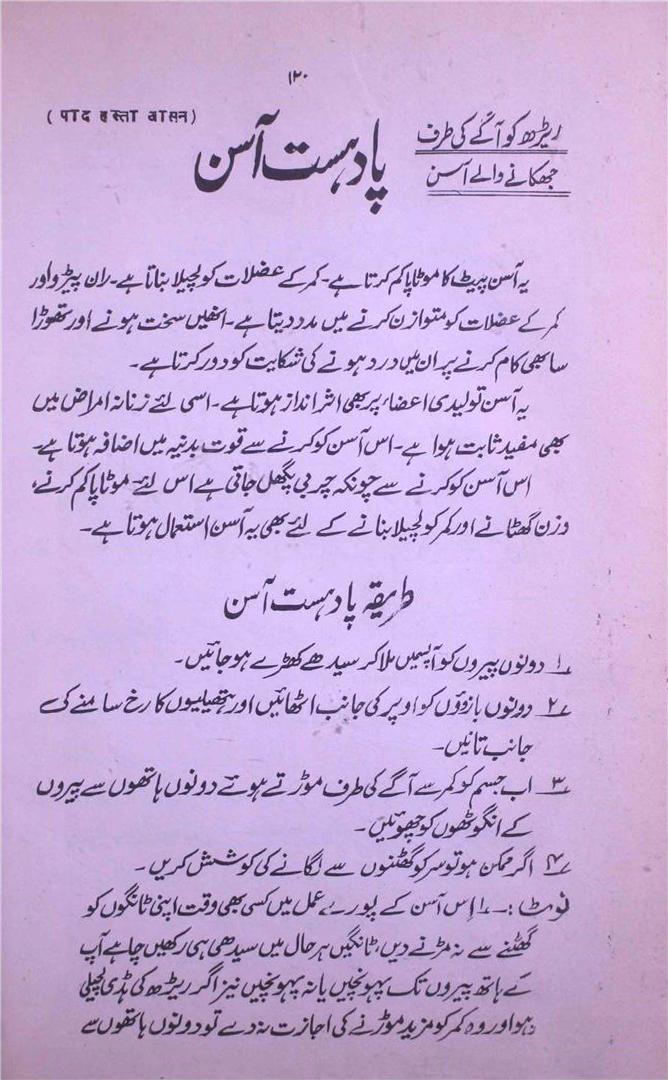 ۱۳۰
ریڑھ کو آگے کی طرف
جھکانے والے آسن
پاد ہست آسن
(पाद हस्ता आसन)
یہ آسن پیٹ کا موٹاپا کم کرتا ہے۔ کمر کے عضلات کو لچیلا بناتا ہے۔ ران پیڑو اور
کمر کے عضلات کو متوازن کرنے میں مدد دیتا ہے۔ انھیں سخت ہونے اور تھوڑا
سا بھی کام کرنے پر ان میں درد ہونے کی شکایت کو دور کرتا ہے۔
یہ آسن تولیدی اعضاء پر بھی اثر انداز ہوتا ہے۔ اسی لئے زنانہ امراض میں
بھی مفید ثابت ہوا ہے۔ اس آسن کو کرنے سے قوت بدنیہ میں اضافہ ہوتا ہے۔
اس آسن کو کرنے سے چونکہ چربی پگھل جاتی ہے اس لئے موٹاپا کم کرنے،
وزن گھٹانے اور کمر کو لچیلا بنانے کے لئے بھی یہ آسن استعمال ہوتا ہے۔
طریقہ پاد ہست آسن
۱۔ دونوں پیروں کو آپسمیں ملا کر سیدھے کھڑے ہو جائیں۔
۲۔ دونوں بازوؤں کو اوپر کی جانب اٹھائیں اور ہتھیلیوں کا رخ سامنے کی
جانب تانیں۔
۳۔ اب جسم کو کمر سے آگے کی طرف موڑتے ہوئے دونوں ہاتھوں سے پیروں
کے انگوٹھوں کو چھوئیں۔
۴۔ اگر ممکن ہو تو سر کو گھٹنوں سے لگانے کی کوشش کریں۔
نوٹ :۔ ۱۔ اس آسن کے پورے عمل میں کسی بھی وقت اپنی ٹانگوں کو
گھٹنے سے نہ مڑنے دیں، ٹانگیں ہر حال میں سیدھی ہی رکھیں چاہے آپ
کے ہاتھ پیروں تک پہونچیں یا نہ پہونچیں نیز اگر ریڑھ کی ہڈی لچیلی
نہ ہو اور وہ کمر کو مزید موڑنے کی اجازت نہ دے تو دونوں ہاتھوں سے